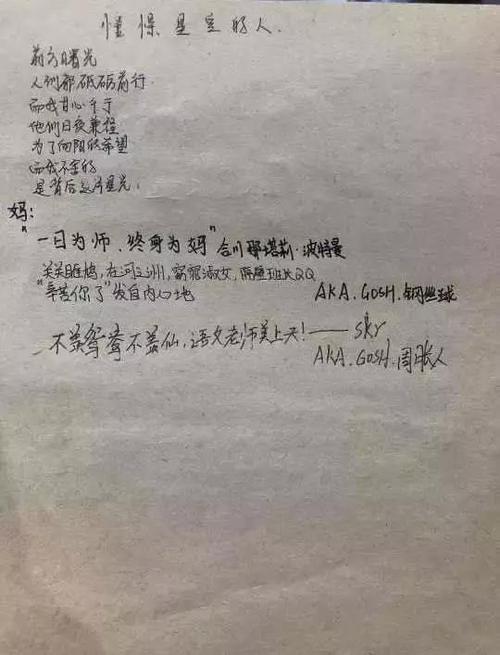 憧憬星空的人.
前方曙光
人们都砥砺前行.
而我甘心于于
他们日夜兼程
为了向阳的希望
而我不舍的
是背后这片星光.
妈:
"一日为师、终身为妈"合川娜塔莉·波特曼
关关雎鸠,在河之洲,窈窕淑女,隔壁班大QQ
"辛苦你了"发自内心地
AKA.GOSH.钢丝球
不羡鸳鸯不羡仙,语文老师美上天!——sky
AKA.GOSH.周胀人